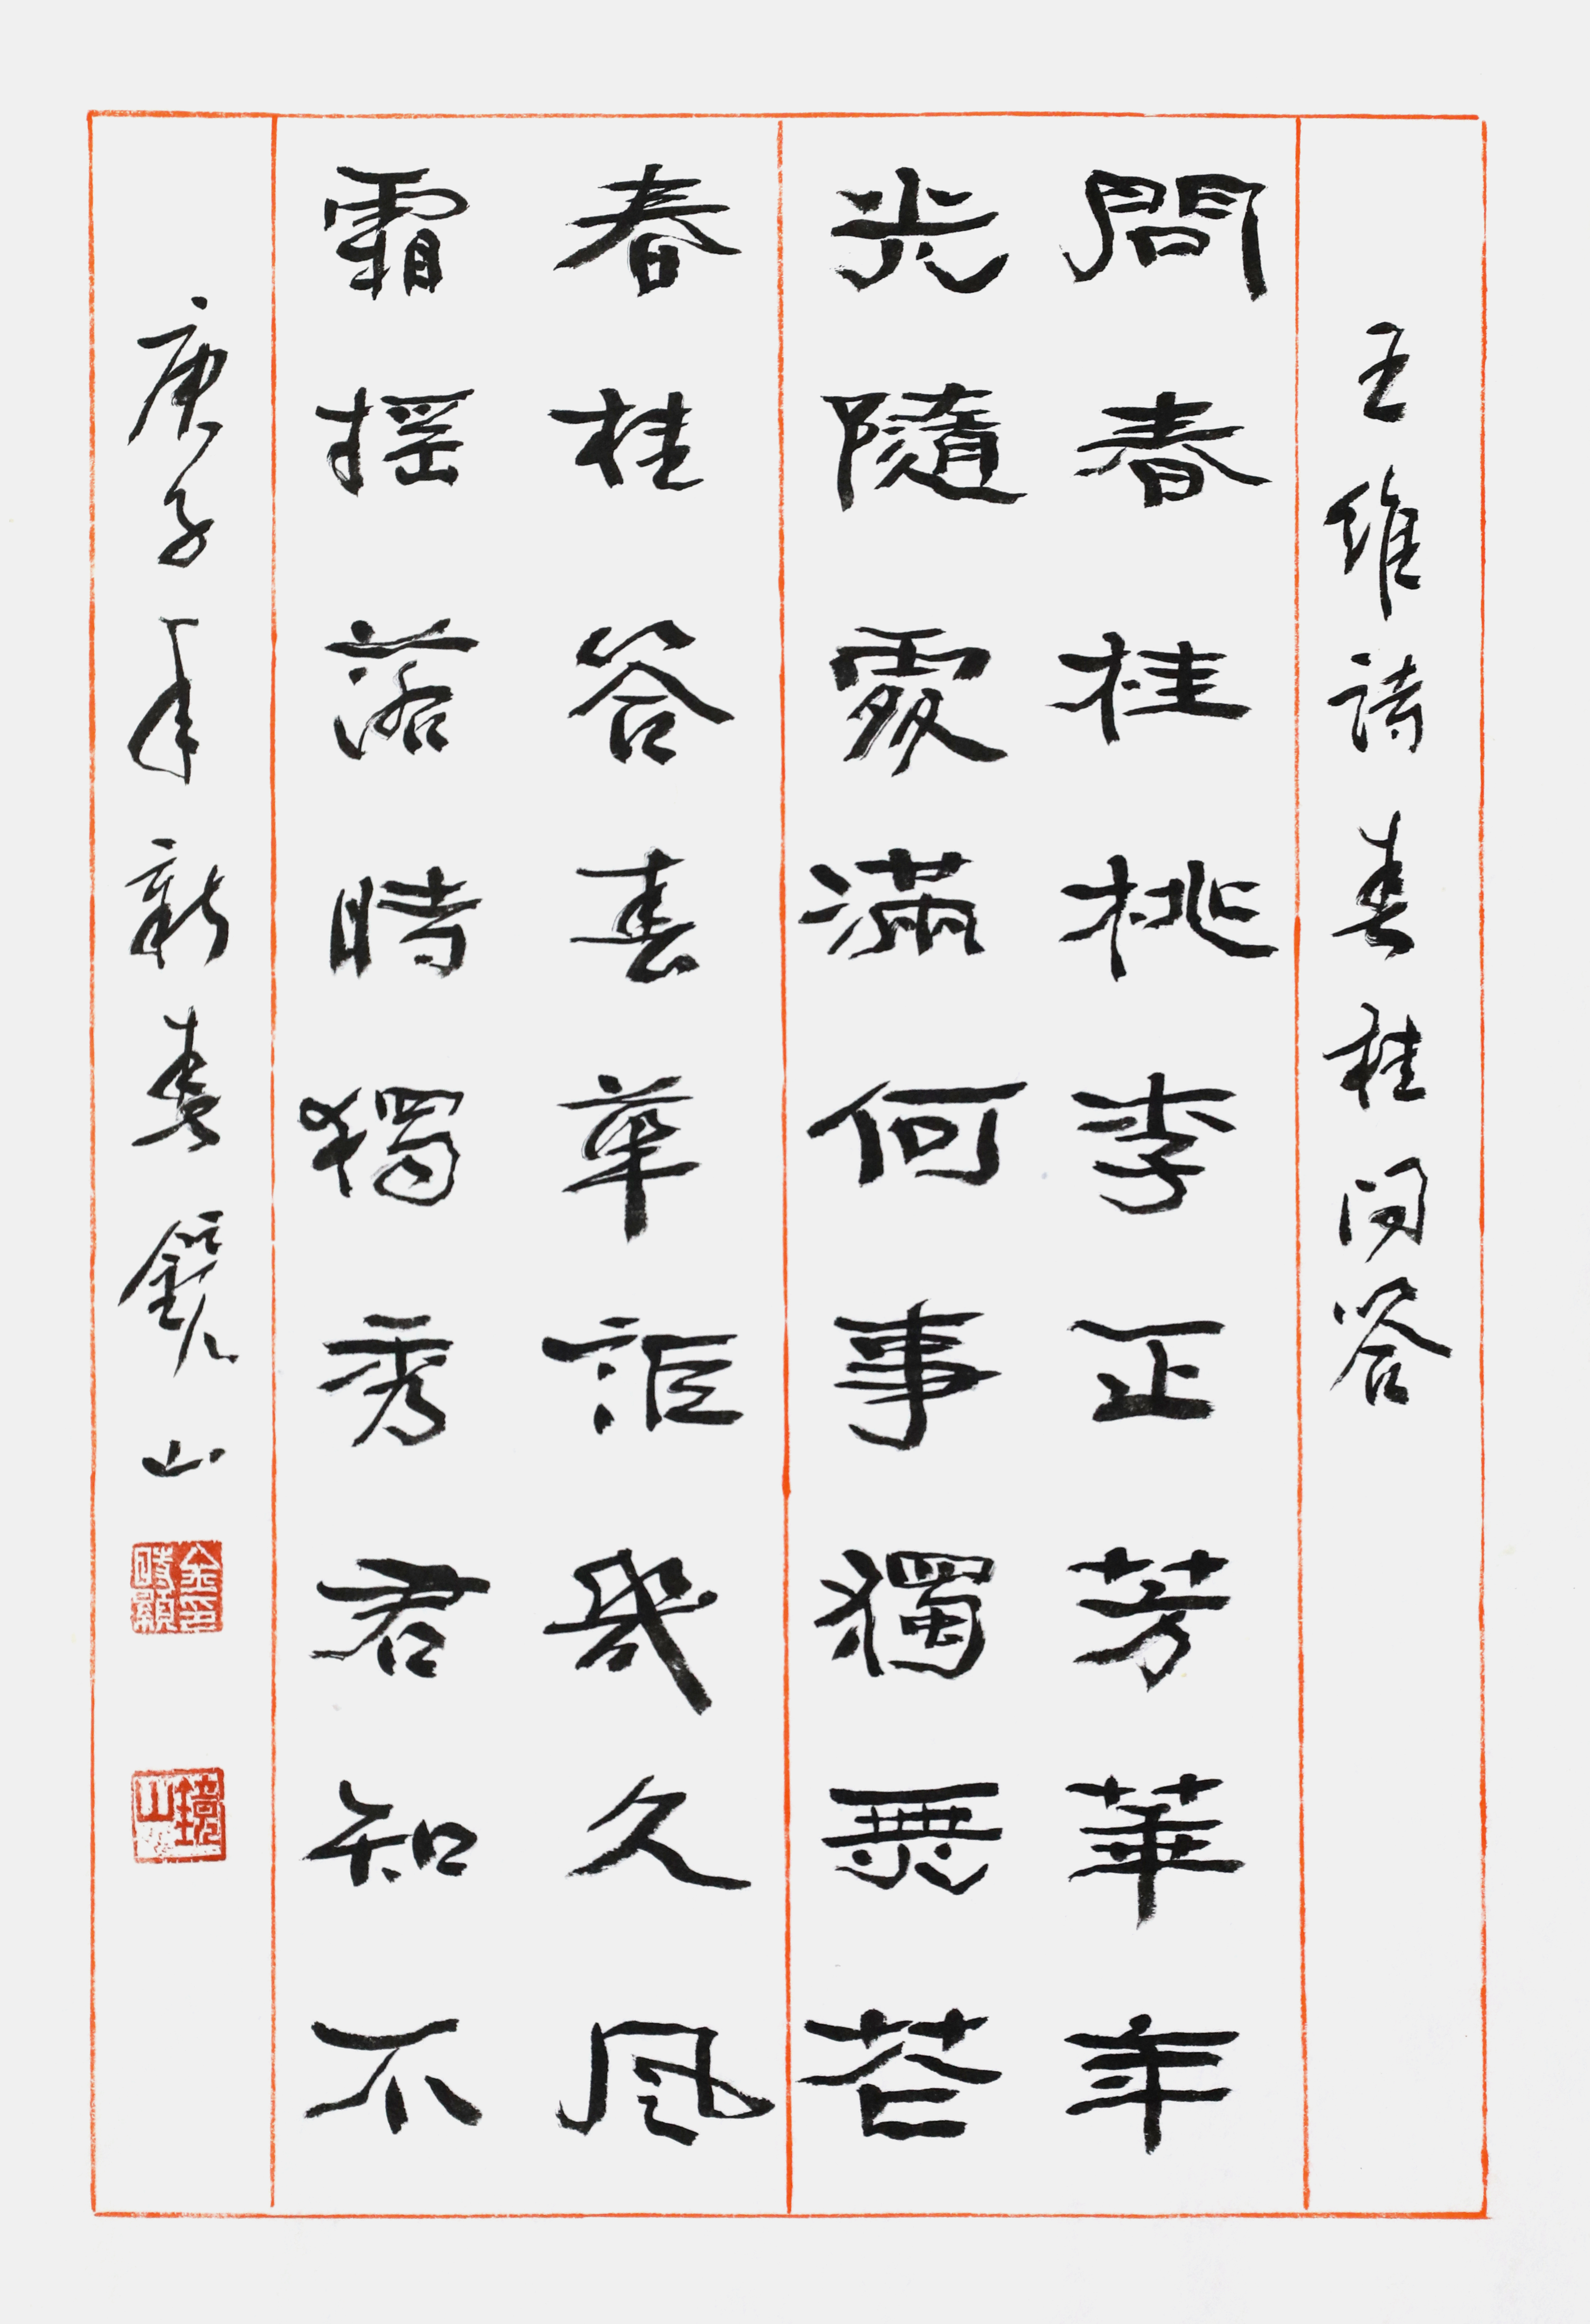 王維詩春桂問答
問春桂桃李正芳華年
光隨處滿何事獨無花
春桂答春華詎幾久風
霜搖落時獨秀君知不
庚子年新春鏡山
金印時顯
鏡山